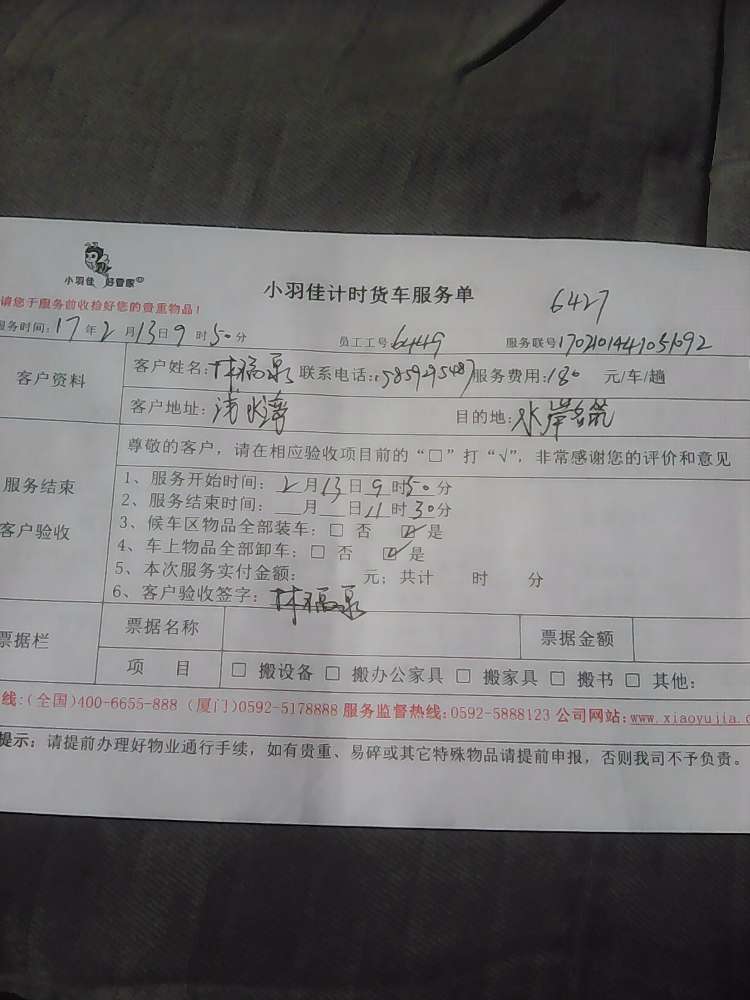 小羽佳 好管家
请您于服务前收检好您的贵重物品！
小羽佳计时货车服务单
6427
服务时间：17年2月13日9时50分 员工工号6449 服务联号17021014410 5692
客户资料
客户姓名：林福泉 联系电话：15859295487 服务费用：180 元/车/趟
客户地址： 目的地：水岸名筑
尊敬的客户，请在相应验收项目前的“□”打“√”，非常感谢您的评价和意见
服务结束
客户验收
1、服务开始时间：2月13日9时50分
2、服务结束时间：__月__日11时30分
3、候车区物品全部装车：□ 否 ☑是
4、车上物品全部卸车：□ 否 ☑是
5、本次服务实付金额： 元；共计 时 分
6、客户验收签字：林福泉
票据栏
票据名称 票据金额
项 目 □ 搬设备 □ 搬办公家具 □ 搬家具 □ 搬书 □ 其他：
线：(全国)400-6655-888 (厦门)0592-5178888 服务监督热线：0592-5888123 公司网站：www.xiaoyujia.c
提示：请提前办理好物业通行手续，如有贵重、易碎或其它特殊物品请提前申报，否则我司不予负责。